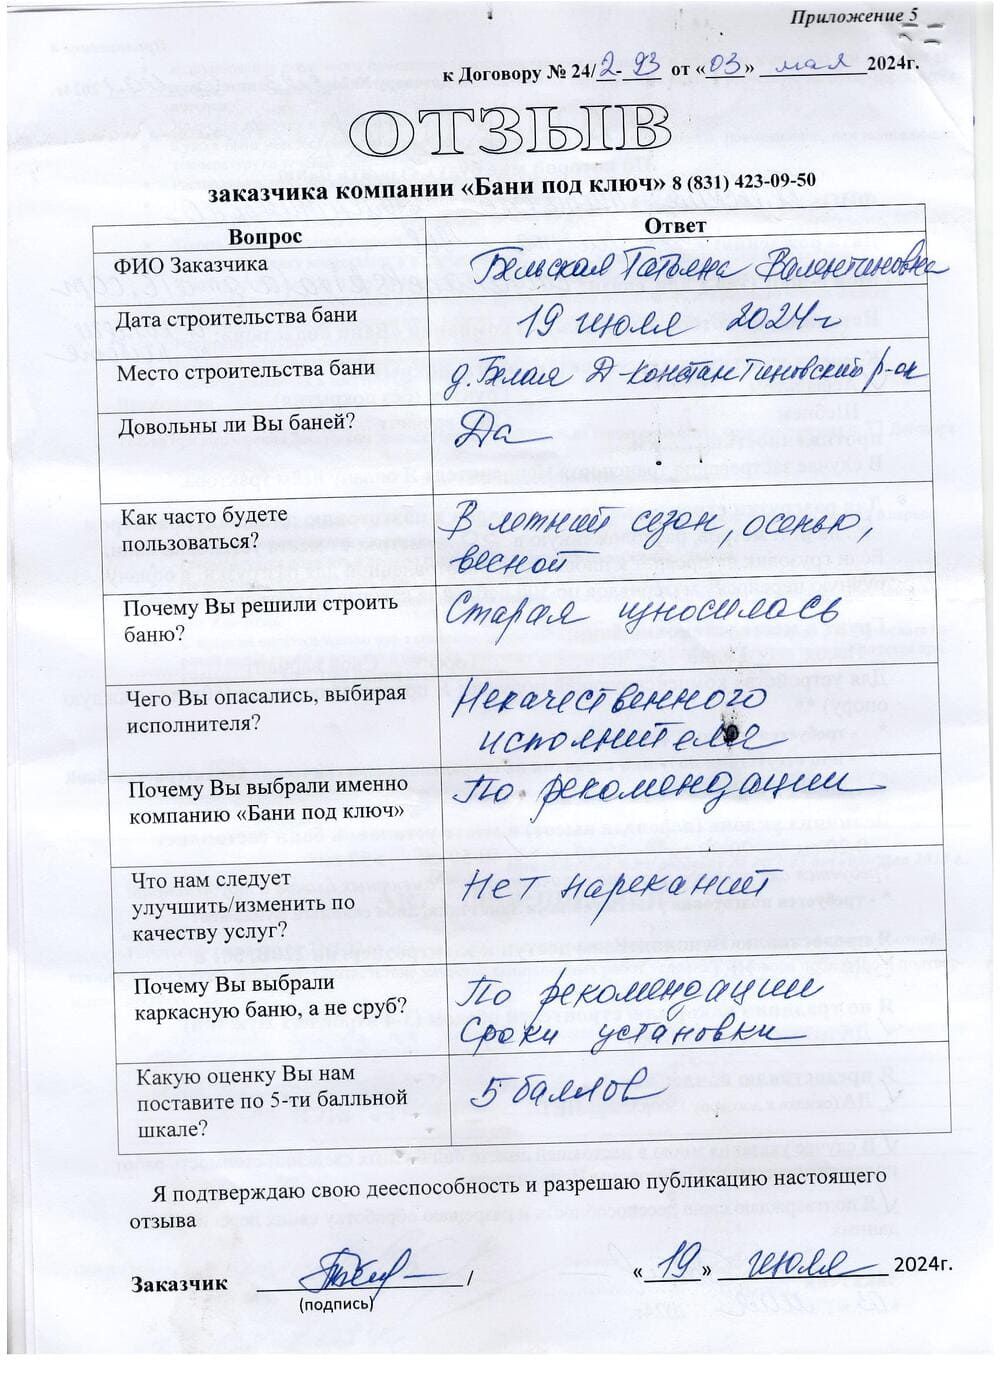 Приложение 5
к Договору № 24/2-93 от «03» мая 2024г.
ОТЗЫВ
заказчика компании «Бани под ключ» 8 (831) 423-09-50
Вопрос Ответ
ФИО Заказчика Бельская Татьяна Валентиновна
Дата строительства бани 19 июля 2024 г
Место строительства бани д. Белая Д-Константиновский р-он
Довольны ли Вы баней? Да
Как часто будете В летний сезон осенью,
пользоваться? весной
Почему Вы решили строить Старая износилась
баню?
Чего Вы опасались, выбирая Некачественного
исполнителя? исполнителя
Почему Вы выбрали именно По рекомендации
компанию «Бани под ключ»
Что нам следует Нет нареканий
улучшить/изменить по
качеству услуг?
Почему Вы выбрали По рекомендации
каркасную баню, а не сруб? Сроки установки
Какую оценку Вы нам 5 баллов
поставите по 5-ти балльной
шкале?
Я подтверждаю свою дееспособность и разрешаю публикацию настоящего
отзыва
Заказчик / «19» июля 2024г.
(подпись)